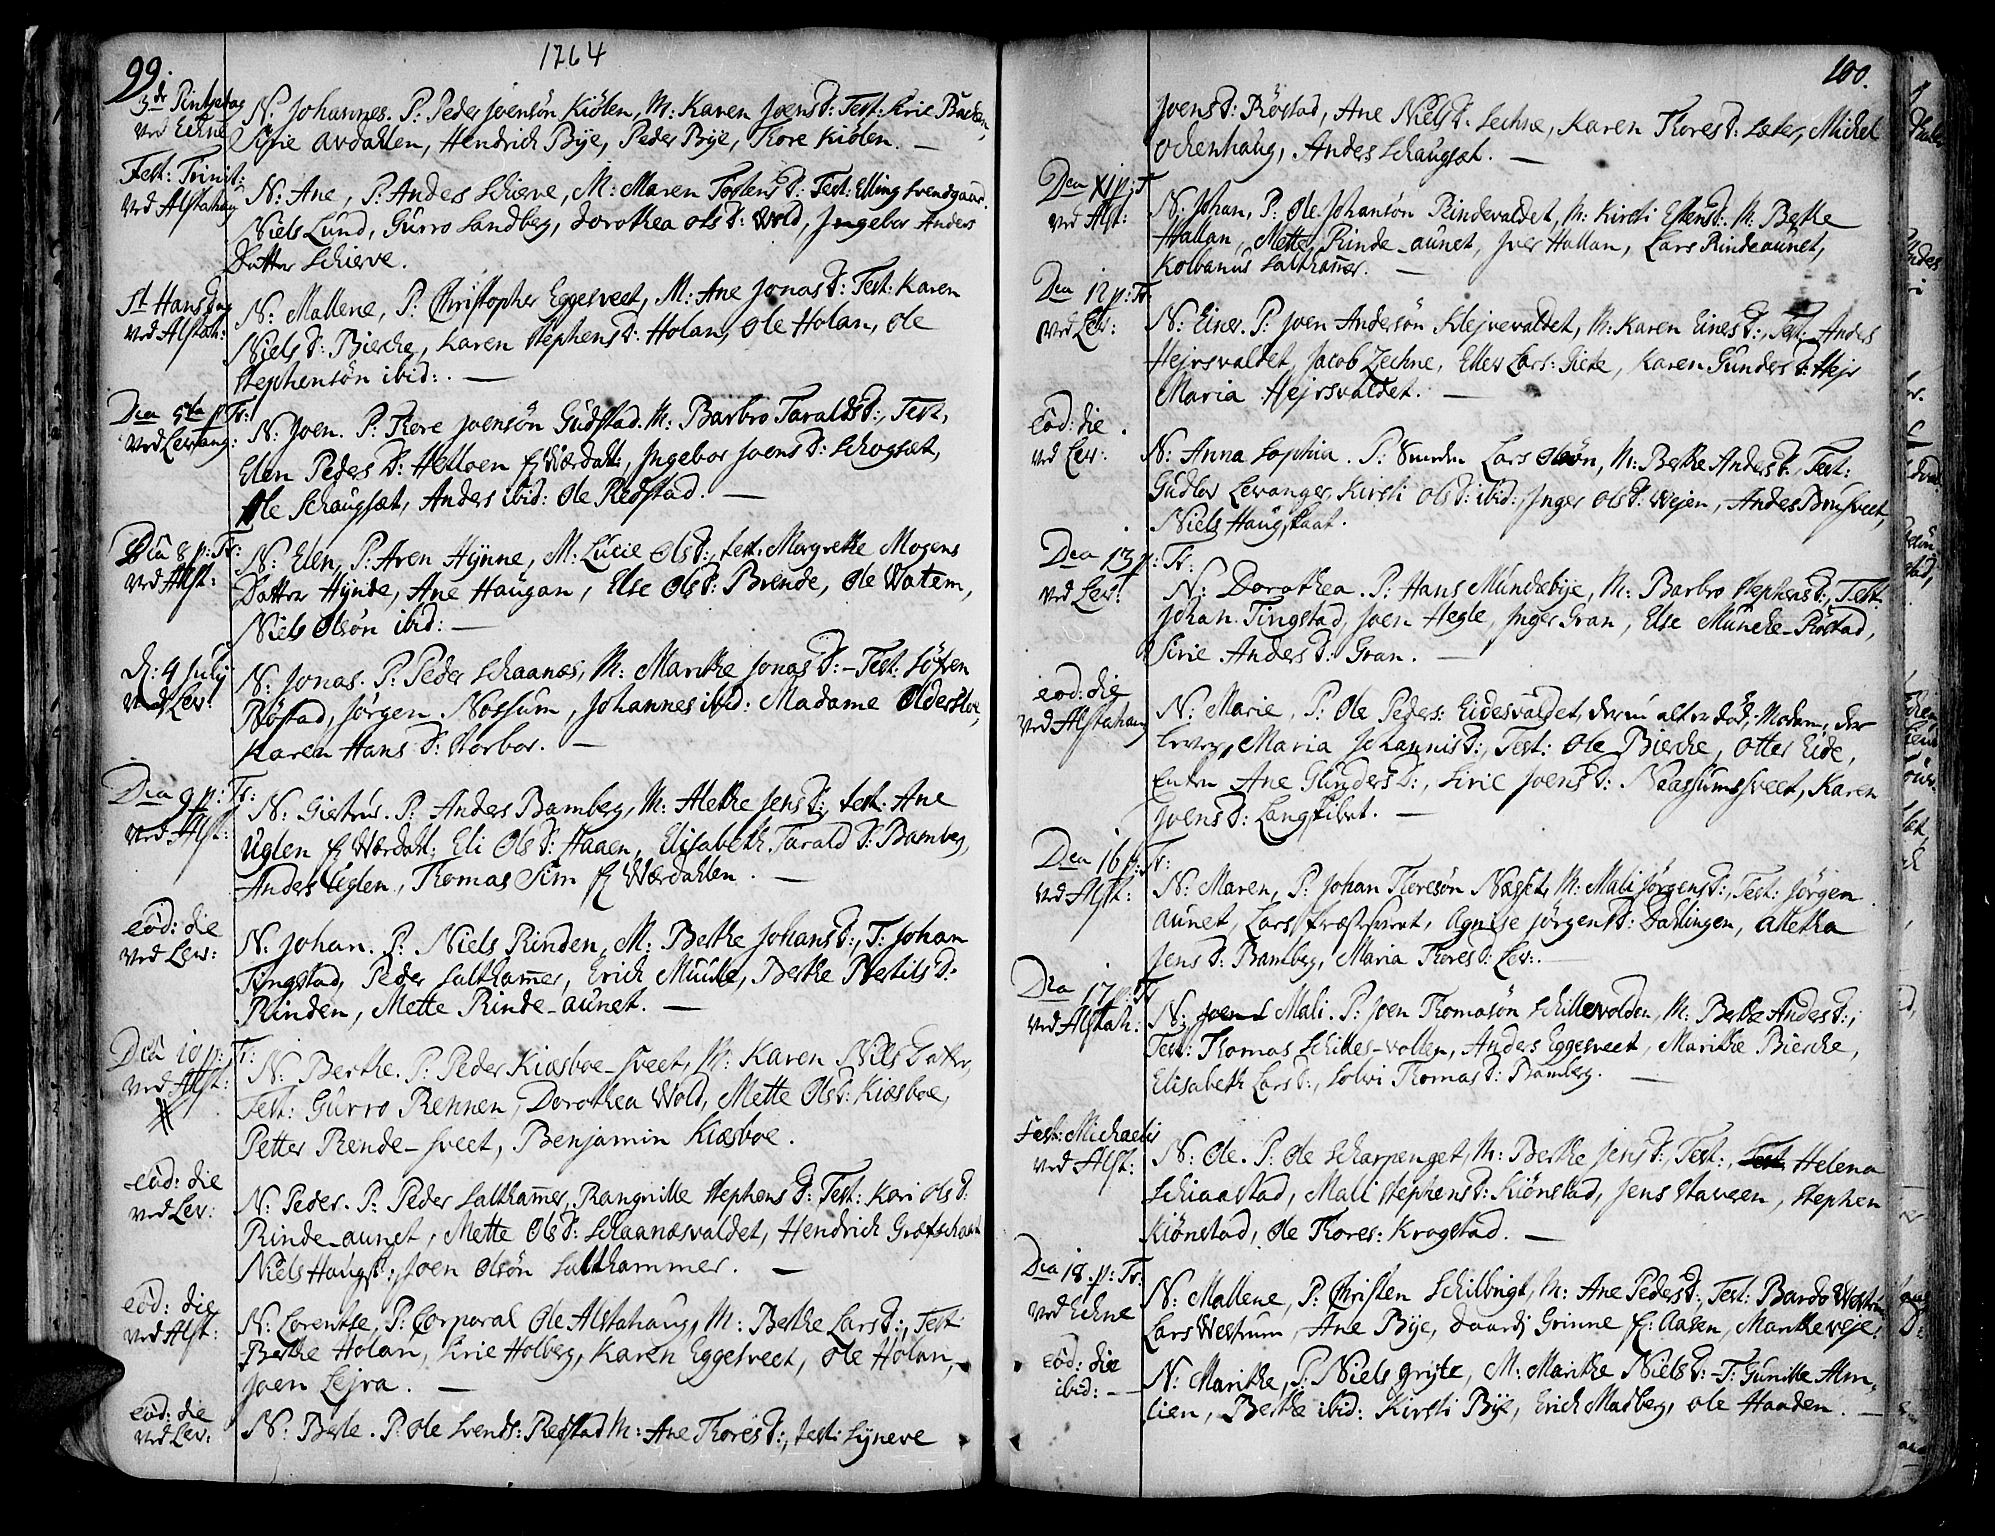 99.
1764
3de Pintsedag
ved Eckne
N. Johannes. P: Peder Joensön Kiölen, M: Karen Joens D: Test: Brie Backen,
Sirie Avdahlen, Hendrich Bÿe, Peder Bÿe, Thore Kiölen. —
Fest: Trinit:
ved Alstahaug
N: Ane, P: Anders Schieve, M: Maren Tostens D: Test: Elling Svendgaar.
Niels Lund, Gurro Sandberg, Dorothea Ols D: Wold, Jngebor Anders
Datter Schieve.
St Hans Dag
ved Alstah:
N: Mallene, P: Christopher Eggesveet, M: Ane Jonas D: Test: Karen
Niels D: Biercke, Karen Stephens D: Holan, Ole Holan, Ole
Stephensön ibid: . —
Dca 5ta p Tr:
ved Levang:
N: Joen. P: Thore Joensön Gudstad. M: Barbro Taralds D:, Test,
Elen Peders D: Helloen f Wærdal:, Jngebor Joens D: Schogsæt,
Ole Schaugsæt, Anders ibid: Ole Redstad. —
Dca 8 p: Tr:
ved Alst:
N: Elen, P: Aren Hÿnne, M. Lucie Ols D:, test: Margrethe Mogens
Datter Hÿnde, Ane Haugan, Else Ols D: Brende, Ole Watem,
Niels Olsön ibid: —
D: 4 Julÿ
ved Lev:
N: Jonas. P: Peder Schaanæs, M: Marithe Jonas D: – Test: Söfren
Röstad, Jörgen Nossum, Johannes ibid: Madame Olderstoe,
Karen Hans D: Norbor. —
Dca 9 p: Tr:
ved Alst:
N: Giertrus. P: Anders Bamberg, M: Alethe Jens D:, test: Ane
Uglen f Wærdal:, Eli Ols D: Haaen, Elisabeth Tarald D: Bamberg,
Anders Uglen, Thomas Sim f Wærdahlen. —
eöd: die
ved Lev:
N: Johan. P: Niels Rinden, M: Berthe Johans D:, T: Johan
Tingstad, Peder Salthamer, Erich Muule, Berthe Pertils D:
Rinden, Mette Rinde-aunet. —
Dca 10 p: Tr:
ved Alst:
N: Berthe. P: Peder Kiæsboe-sveet, M: Karen Nils Datter,
Test: Gurro Rennen, Dorothea Wold, Mette Ols D: Kiæsboe,
Petter Rende-sveet, Benjamin Kiæsboe.
eöd: die
ved Lev:
N: Peder. P: Peder Salthamer, Rangnille Stephens D: Test: Kari Ols D:
Rinde-aunet, Mette Ols D: Schaanæsvaldet, Hendrich Grafschaat
Niels Haugs:, Joen Olsön Salthammer. —
eöd: die
ved Alst:
N: Lorentse, P: Corporal Ole Alstahaug, M: Berthe Lars D:, Test
Berthe Holan, Sirie Holberg, Karen Eggesveet, Ole Holan,
Joen Lejra. —
eöd: die
ved Lev:
N: Berle. P: Ole Svends: Redstad M: Ane Thores D:, test: Sÿneve
100.
Joens D: Röstad, Ane Niels D. Sechne, Karen Thores D: Sæter, Michel
Ochenhaug, Anders Schaugsæt. —
Dca XI p: T
ved Alst:
N: Johan, P: Ole Johansön Rindevaldet, M: Kirsti Estens D: M: Berthe
Hallan, Mette Rinde-aunet, Jver Hallan, Lars Rindeaunet,
Kolbanus Salthamer. —
Dca 12 p: Tr.
ved Lev:
N: Einer. P: Joen Andersön Klejvevaldet, M: Karen Einers D:, Test: Anders
Hejrsvaldet, Jacob Zechne, Ellev Lars: Giete, Karen Gunders D: Hejr
Maria Hejrsvaldet. —
eöd: die
ved Lev:
N: Anna Sophia. P: Lars Olsön, M: Berthe Anders D:, Test:
Gudlov Levanger, Kirsti Ols D: ibid:, Jnger Ols D: Wejen, Anders Brusveet,
Niels Haugskaat.
Dca 13 p: Tr:
ved Lev:
N: Dorothea. P: Hans Mundebÿe, M: Barbro Stephens D:, Test
Johan Tingstad, Joen Hegle, Jnger Gran, Else Muncke-Röstad,
Sirie Anders D: Gran. —
eöd: die
ved Alstahaug
N: Marie, P: Ole Peders: Eidesvaldet, derin alt er död, Modern, der
lever, Maria Johannis D:, Test: Ole Biercke, Otter Eide,
Enten Ane Gunders D:, Sirie Joens D: Naassumssveet, Karen
Joens D: Langskibet. —
Dca 16 p: Tr:
ved Alst:
N: Maren, P: Johan Thoresön Næsset, M: Mali Jörgens D:, Test: Jörgen
aunet, Lars, Agnese Jörgens D: Dahlingen, Aletha
Jens D: Bamberg, Maria Thores D: Lev: —
Dca 17 p: Tr
ved Alstah:
N: Joen L Mali. P: Joen Thomasön Schillevolden, M: Berthe Anders D:,
Test: Thomas Schilles-vollen, Anders Eggesveet, Marithe Biercke,
Elisabeth Lars D:, Solwi Thomas D: Bamberg. —
Fest: Michaelis
ved Alst:
N: Ole. P: Ole Scharpenget, M: Berthe Jens D:, Test:, Test Helena
Schiaastad, Mali Stephens D: Kiönstad, Jens Staveen, Stephen
Kiönstad, Ole Thores: Krogstad. —
Dca 18. p: Tr:
ved Eckne
N: Mallene, P: Christen Schilbrigt, M: Ane Peders D:, Test: Bardo Westrum
Lars Westrum, Ane Bÿe, Daardj Grinne f: Aasen, Marithe Veje,
eöd: die
ibid: —
N: Marithe, P: Niels Grÿte, M: Marithe Niels D: – T: Gunille Alm-
lien, Berthe ibid: Kirsti Bÿe, Erich Madberg, Ole Haaden. —